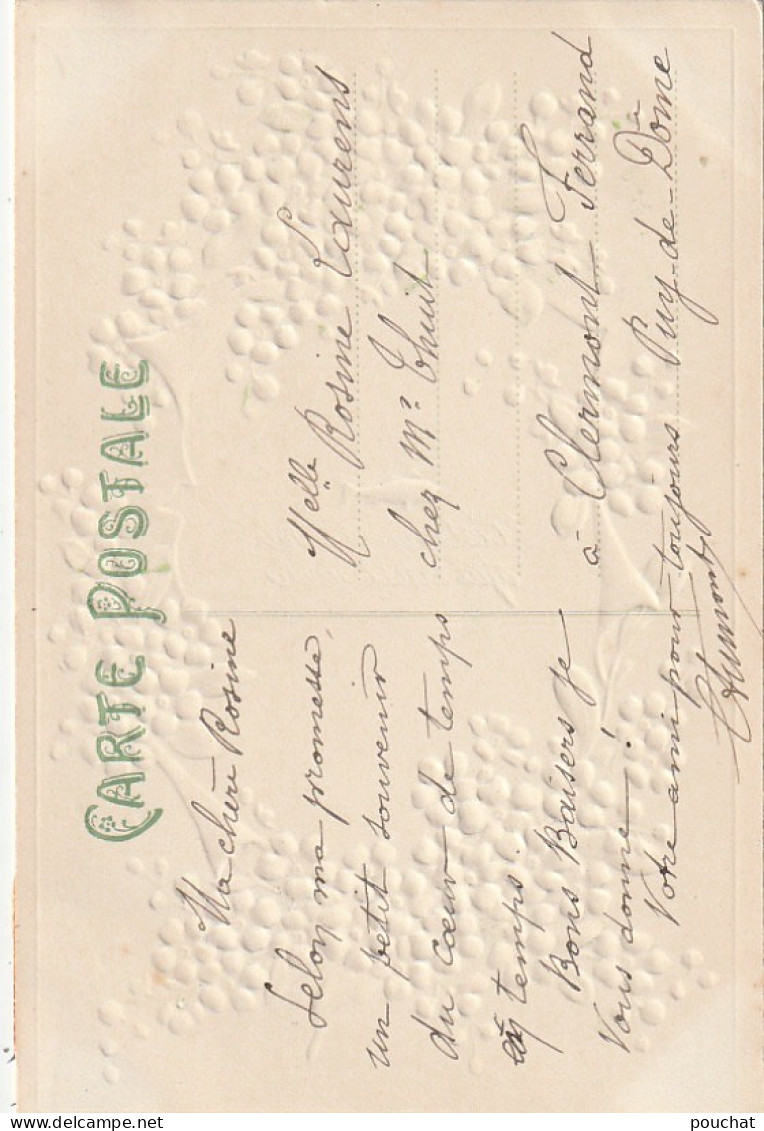 CARTE POSTALE
Ma chère Rosine
Selon ma promesse,
un petit souvenir
du cœur de temps
en temps.
Bons Baisers je
Vous donne !
Votre ami pour toujours
Melle Rosine Laurens
chez Mr Thuit
à Clermont Ferrand
Puy-de-Dôme
pouchat